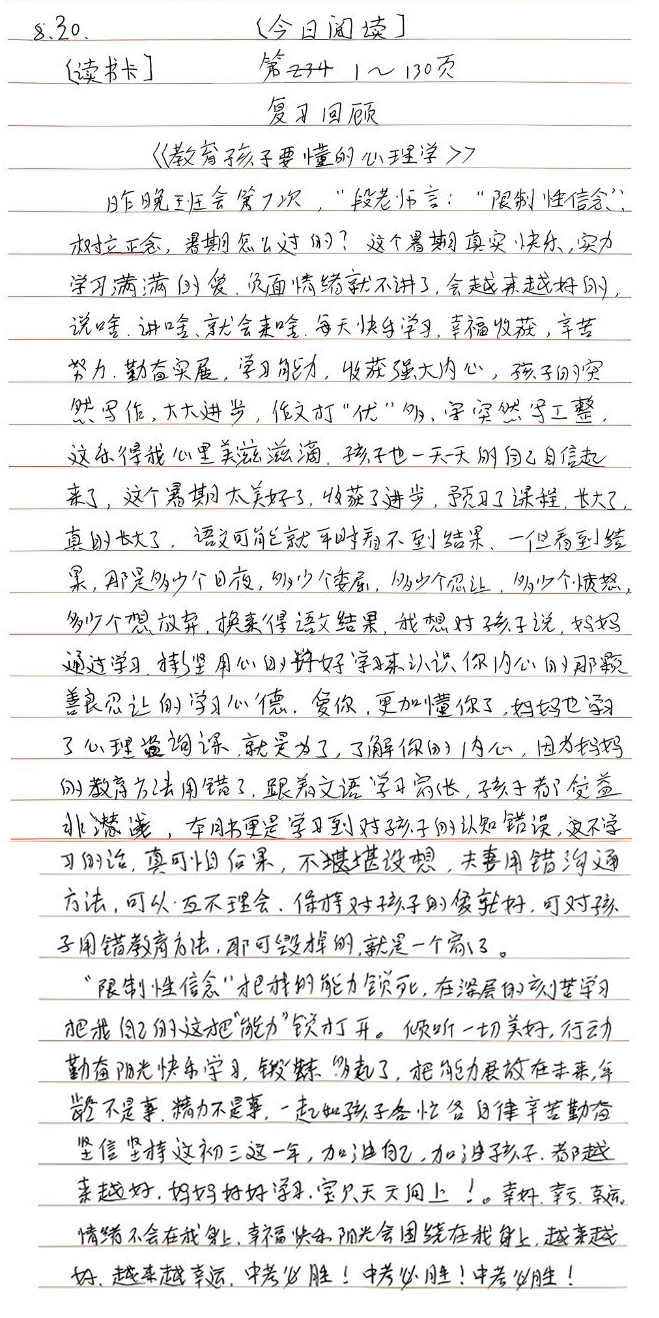 8.30. 〔今日阅读〕
〔读书卡〕 第 1～130页
复习回顾
《教育孩子要懂的心理学》
昨晚班会第7次，“段老师言：“限制性信念”，
树立正念，暑期怎么过的？这个暑期真实快乐，实力
学习满满的爱.负面情绪就不讲了，会越来越好的，
说啥.讲啥.就会来啥.每天快乐学习.幸福收获，辛苦
努力.勤奋实展，学习能力，收获强大内心，孩子的突
然写作，大大进步，作文打“优”多、字突然写工整，
这乐得我心里美滋滋滴.孩子也一天一天的自己自信起
来了，这个暑期太美好了，收获了进步，预习了课程，长大了，
真的长大了，语文可能就平时看不到结果、一但看到结
果，那是多少个日夜，多少个委屈，多少个忍让，多少个愤怒，
多少个想放弃，换来得语文结果，我想对孩子说，妈妈
通过学习.持坚用心的好好学习来认识你内心的那颗
善良忍让的学习心德.爱你，更加懂你了，妈妈也学习
了心理咨询课，就是为了，了解你的内心，因为妈妈
的教育方法用错了，跟着文语学习家长，孩子都受益
非浅，本周书更是学习到对孩子的认知错误，要不学
习的话，真可怕后果，不堪设想，夫妻用错沟通
方法，可以互不理会、保持对孩子的爱就好，可对孩
子用错教育方法，那可毁掉的，就是一个家了。
“限制性信念”把我的能力锁死，在深层的刻苦学习
把我自己的这把“能力”锁打开。倾听一切美好，行动
勤奋阳光快乐学习，锻炼多起了，把能力展放在未来，年
龄不是事，精力不是事，一起和孩子各忙各自律辛苦勤奋
坚信坚持这初三这一年，加油自己，加油孩子.都越
来越好.妈妈好好学习.宝贝天天向上！。幸好.幸亏.幸运。
情绪不会在我身上.幸福快乐阳光会围绕在我身上，越来越
好、越来越幸运.中考必胜！中考必胜！中考必胜！